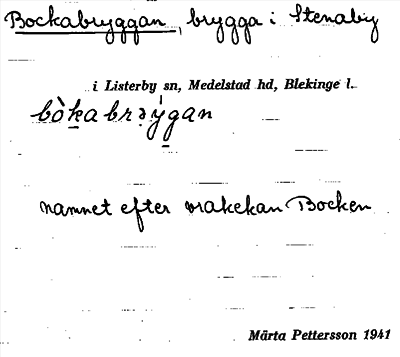 Bockabryggan, brygga i Stenaby
i Listerby sn, Medelstad hd, Blekinge l.
namnet efter vrakekan Bocken
Märta Pettersson 1941